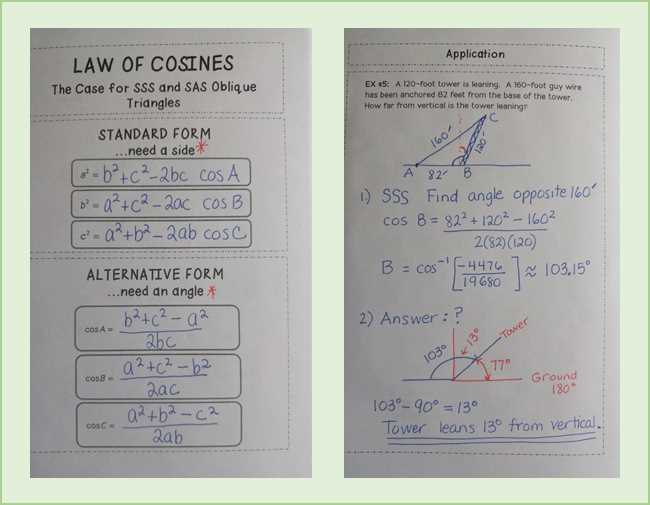 LAW OF COSINES
The Case for SSS and SAS Oblique
Triangles
STANDARD FORM
...need a side*
a² = b²+c²-2bc cos A
b² = a²+c²-2ac cos B
c² = a²+b²-2ab cos C
ALTERNATIVE FORM
...need an angle *
cosA = b²+c²-a² / 2bc
cosB = a²+c²-b² / 2ac
cosC = a²+b²-c² / 2ab
Application
EX #5: A 120-foot tower is leaning. A 160-foot guy wire
has been anchored 82 feet from the base of the tower.
How far from vertical is the tower leaning?
C
160'
?
120'
A
82'
B
1) SSS Find angle opposite 160'
cos B = 82² + 120² - 160² / 2(82)(120)
B = cos⁻¹ [-4476 / 19680] ≈ 103.15°
2) Answer: ?
103°
13°
Tower
77°
Ground
180°
103°-90° = 13°
Tower leans 13° from vertical.